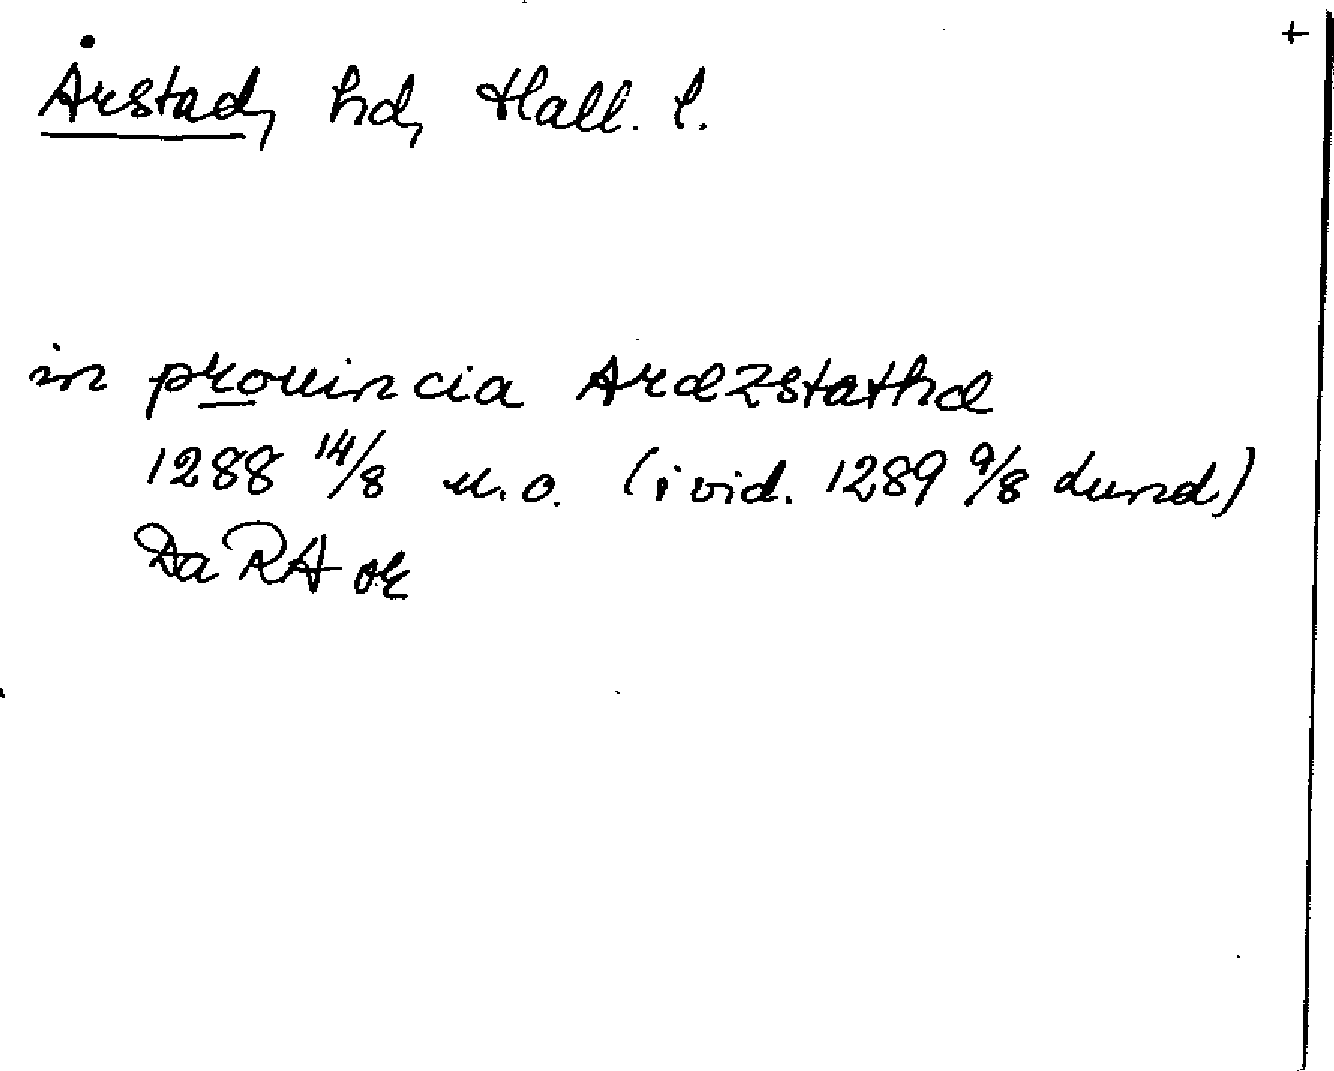 +
Årstad, hd, Hall. l.
in prouincia Ardzstathd
1288 14/8 u.o. (i vid. 1289 9/8 Lund)
Da RA or